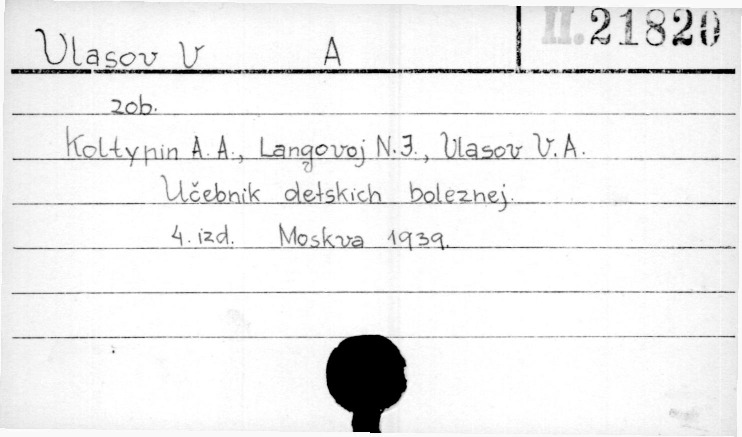 Vlasov V A II. 21820
zob.
Koltypin A. A., Langovoj N. J., Vlasov V. A.
Učebnik detskich boleznej.
4. izd. Moskva 1939.